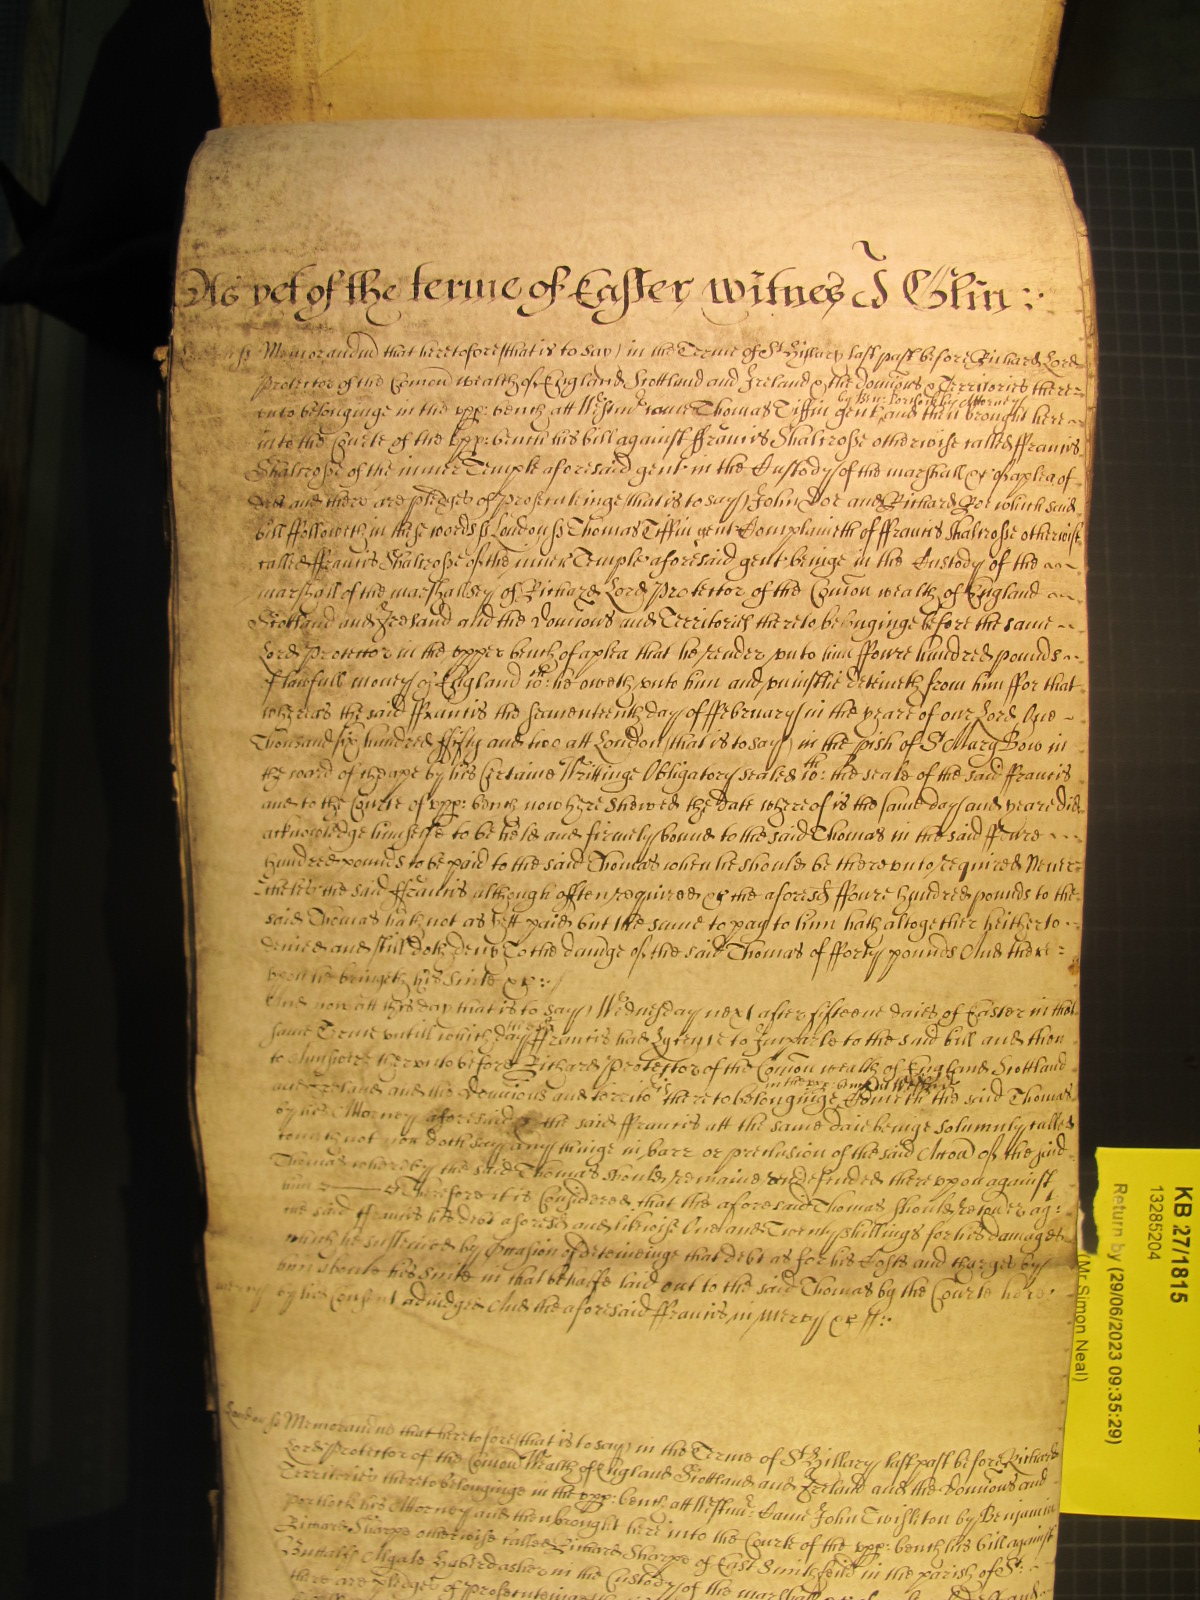 As yet of the terme of Easter Witnes J Glin :·
London ss Memorandd that heretofore (that is to say) in the Terme of St Hillary last past before Richard Lord
Protector of the Comon wealth of England Scottland and Ireland & the Domions & Territories there=
by Ben: Portlock his Attorney
unto belonginge in the upp: bench att Westmr came Thomas Tiffin gent and then brought here
into the Courte of the upp: bench his bill against ffrancis Shalcrosse otherwise called ffrancis
Shalcrosse of the inner Temple aforesaid gent in the Custody of the marshall &c of a plea of
Det and there are pledges of prosecutinge (that is to say) John Doe and Richard Roe which said
bill ffolloweth in these words ss London ss Thomas Tiffin gent Complaineth of ffrancis Shalcrosse otherwise
called ffrancis Shalcrosse of the inner Temple aforesaid gent beinge in the Custody of the
marshall of the marshallsey of Richard Lord Protector of the Comon wealth of England
Scottland and Ireland and the Domions and Territories thereto belonginge before the same
Lord Protector in the upper bench of a plea that he render unto him ffoure hundred pounds
of lawfull money of England wch he oweth unto him and uniustlie deteineth from him ffor that
whereas the said ffrancis the seaventeenth day of ffebruary in the yeare of our Lord One
Thousand six hundred ffifty and two att London (that is to say) in the pish of St Mary Bow in
the ward of Cheape by his Certaine Writtinge Obligatory sealed wth the seale of the said ffrancis
and to the Courte of upp: bench now here shewed the date whereof is the same day and yeare did
acknowledge himselfe to be held and firmely bound to the said Thomas in the said ffoure
hundred pounds to be paid to the said Thomas when he should be thereunto required Never
theles the said ffrancis although often required &c the aforesd ffoure hundred pounds to the
said Thomas hath not as yett paid but the same to pay to him hath altogether heitherto
denied and still doth deny To the damge of the said Thomas of fforty pounds And there=
upon he bringeth his Suite &c :·
And now att this day that is to say Wednesday next after fifteene daies of Easter in this
same Terme untill which day the said ffrancis had Lycence to Imparle to the said bill and then
to Answere thereunto before Richard Protector of the Comon wealth of England Scottland
in the upp: bench att Westmr
and Ireland and the Domions and territories thereto belonginge Cometh the said Thomas
by his Attorney aforesaid & the said ffrancis att the same daie beinge solemnly called
cometh not nor doth say any thinge in barr or preclusion of the said Accon of the said
Thomas whereby the said Thomas should remaine undefended thereupon against
him Therefore it is Considered that the aforesaid Thomas should recover ag:
the said ffrancis his debt aforesd and likewise One and Twenty shillings for his damages
which he susteined by Occasion of deteininge that debt as for his Costs and charges by
him aboute his Suite in that behalfe laid out to the said Thomas by the Courte here
mercy by his Consent adiudged And the aforesaid ffrancis in mercy &c ss :·
London ss Memorandd that heretofore (that is to say) in the Terme of St Hillary last past before Richard
Lord Protector of the Comon Wealth of England Scottland and Ireland and the Domions and
Territories thereto belonginge in the upp: bench att Westmr: Came John Twisleton by Benjamin
Portlock his Attorney and then brought here into the Courte of the upp: bench his bill against
Richard Sharpe otherwise called Richard Sharpe of East Smithfeild in the parish of St
Buttolls Algate Haberdasher in the Custody of the marshall
there are pledges of prosecutinge
KB 27/1815
13285204
Return by (29/06/2023 09:35:29)
(Mr Simon Neal)